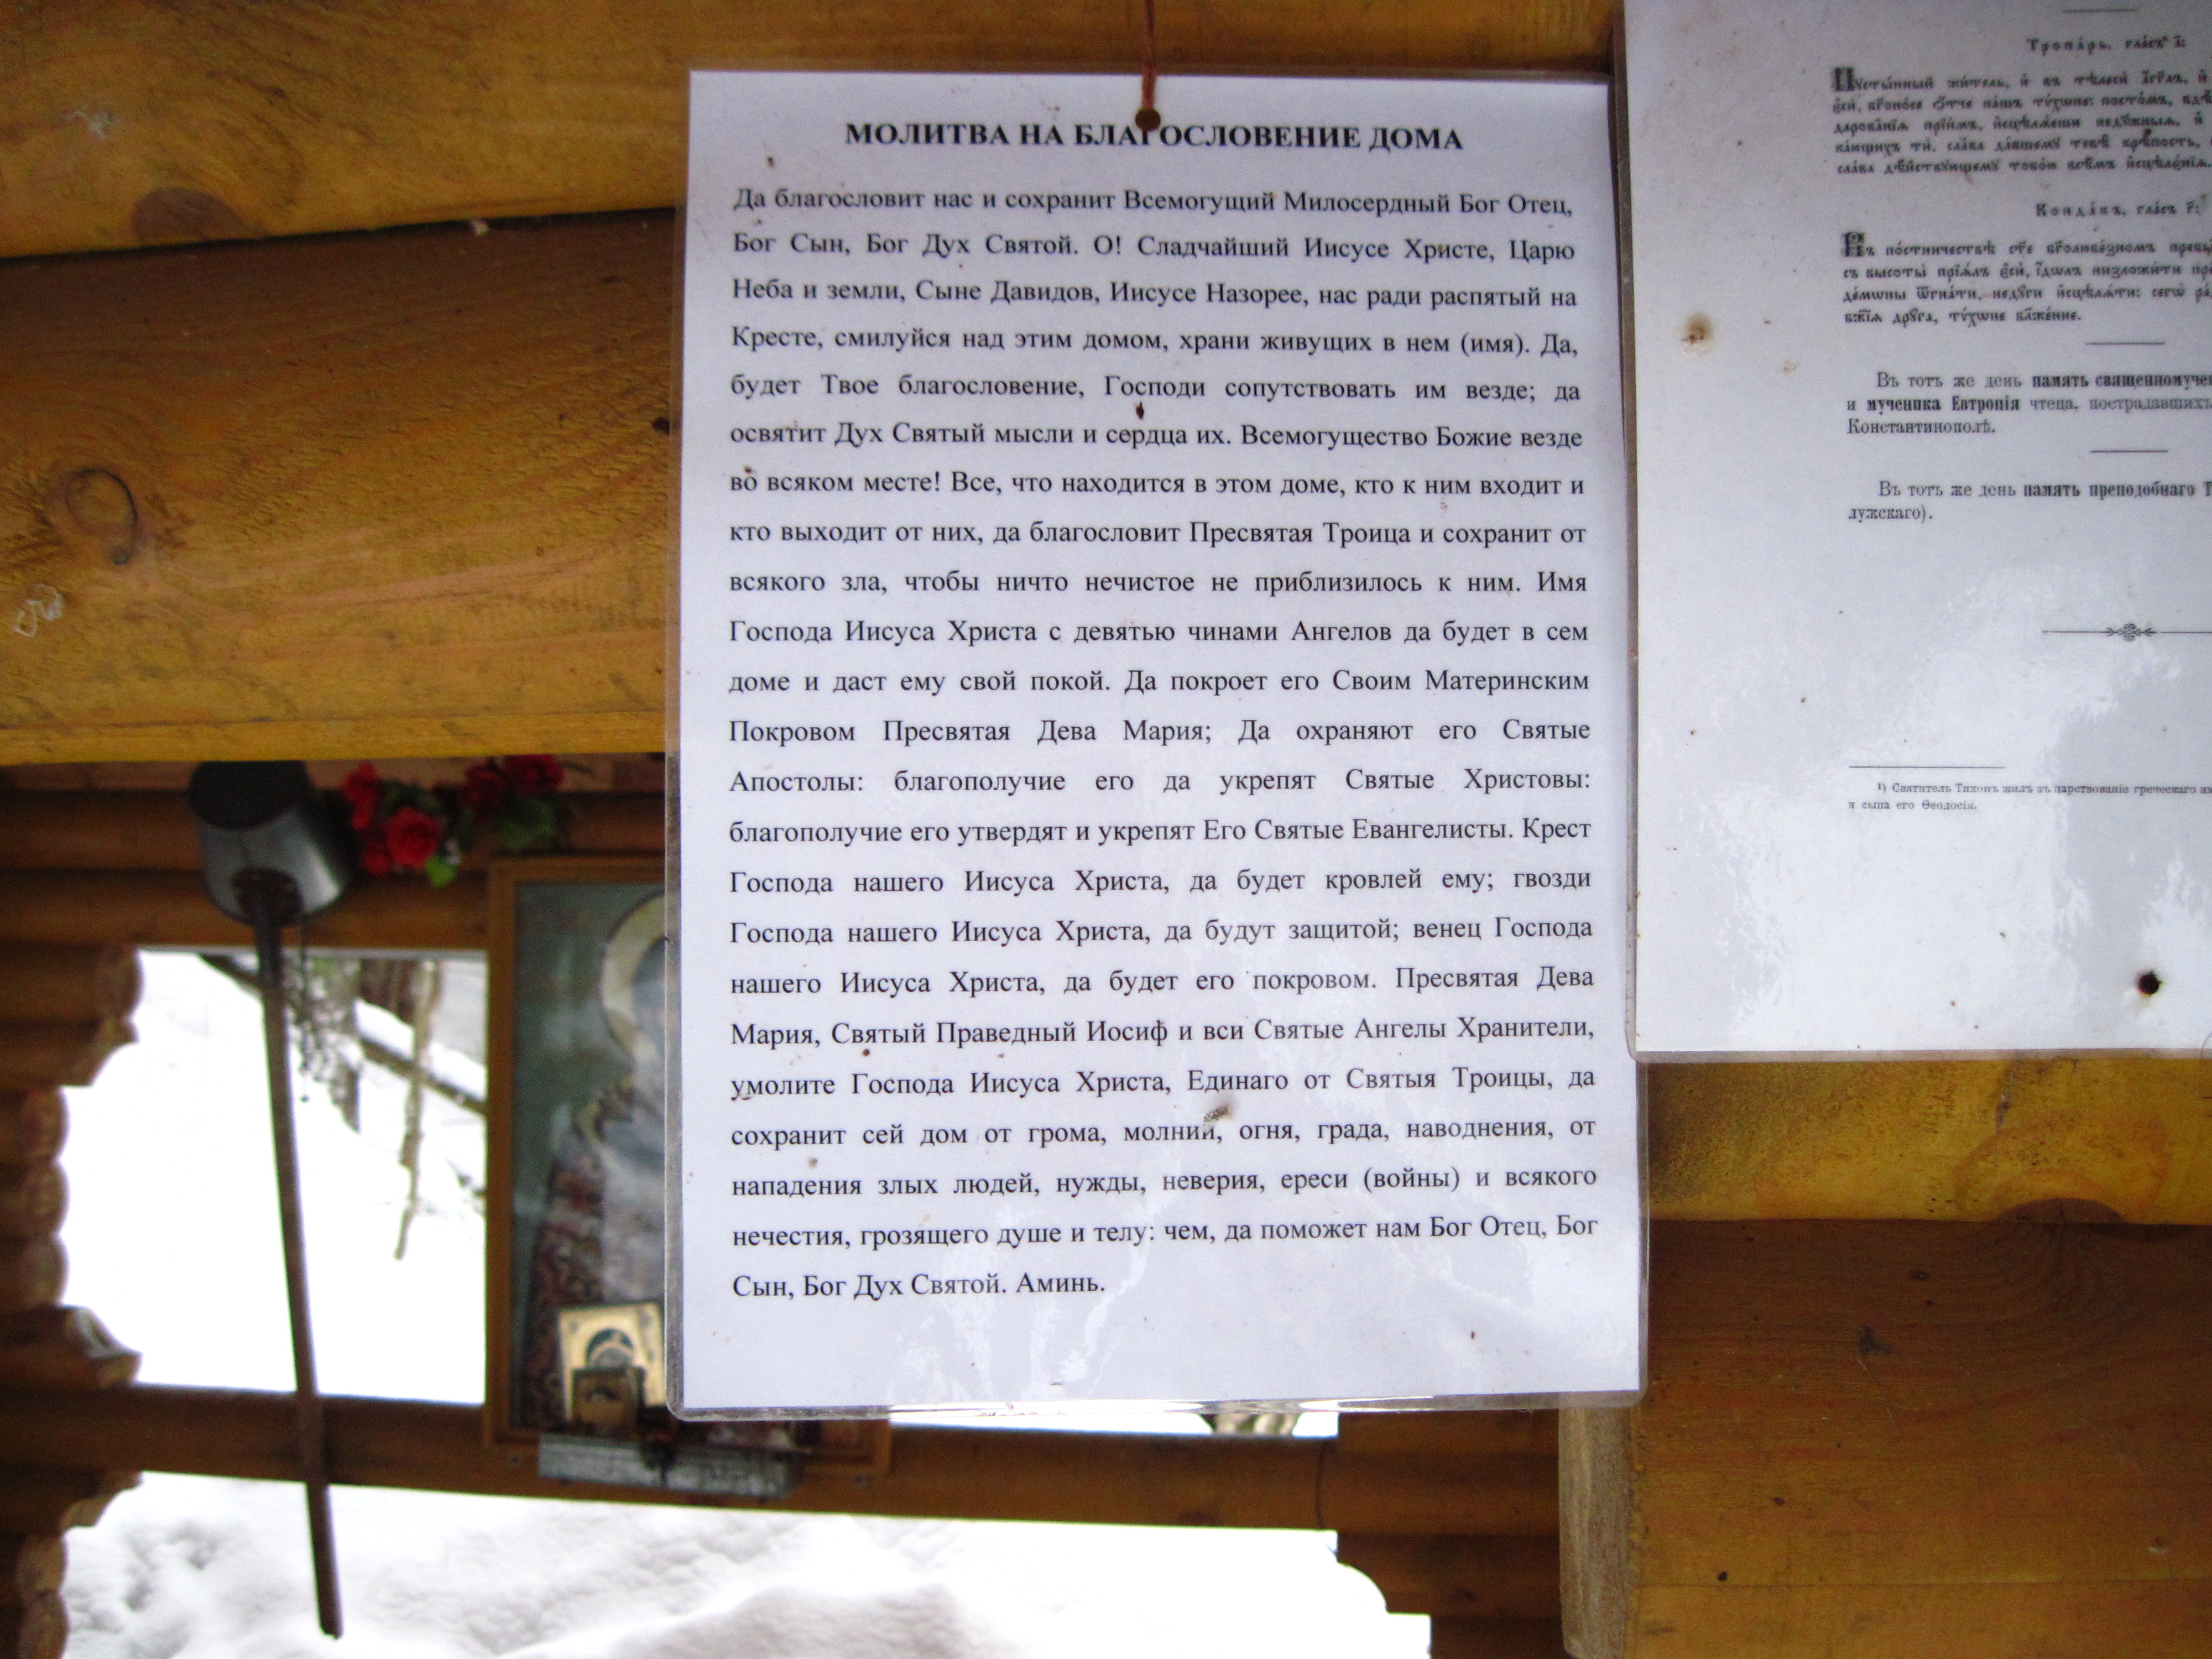 МОЛИТВА НА БЛАГОСЛОВЕНИЕ ДОМА
Да благословит нас и сохранит Всемогущий Милосердный Бог Отец,
Бог Сын, Бог Дух Святой. О! Сладчайший Иисусе Христе, Царю
Неба и земли, Сыне Давидов, Иисусе Назорее, нас ради распятый на
Кресте, смилуйся над этим домом, храни живущих в нем (имя). Да,
будет Твое благословение, Господи сопутствовать им везде; да
освятит Дух Святый мысли и сердца их. Всемогущество Божие везде
во всяком месте! Все, что находится в этом доме, кто к ним входит и
кто выходит от них, да благословит Пресвятая Троица и сохранит от
всякого зла, чтобы ничто нечистое не приблизилось к ним. Имя
Господа Иисуса Христа с девятью чинами Ангелов да будет в сем
доме и даст ему свой покой. Да покроет его Своим Материнским
Покровом Пресвятая Дева Мария; Да охраняют его Святые
Апостолы: благополучие его да укрепят Святые Христовы:
благополучие его утвердят и укрепят Его Святые Евангелисты. Крест
Господа нашего Иисуса Христа, да будет кровлей ему; гвозди
Господа нашего Иисуса Христа, да будут защитой; венец Господа
нашего Иисуса Христа, да будет его покровом. Пресвятая Дева
Мария, Святый Праведный Иосиф и вси Святые Ангелы Хранители,
умолите Господа Иисуса Христа, Единаго от Святыя Троицы, да
сохранит сей дом от грома, молнии, огня, града, наводнения, от
нападения злых людей, нужды, неверия, ереси (войны) и всякого
нечестия, грозящего душе и телу: чем, да поможет нам Бог Отец, Бог
Сын, Бог Дух Святой. Аминь.
Тропа́рь, гла́съ
Пꙋсты́нный жи́тель, и҆ въ тѣлесѝ
на́шъ тѵ́хѡне: посто́мъ,
дарова̑нїѧ прїи́мъ, и҆сцѣлѧ́еши недꙋ́жныѧ, и҆
сла́ва да́вшемꙋ тебѣ̀ крѣ́пость,
сла́ва дѣ́йствꙋющемꙋ тобо́ю всѣ̑мъ и҆сцѣлє́нїѧ.
Конда́къ, гла́съ
Въ по́стничествѣ
съ высоты̀ прїѧ́лъ є҆сѝ, і҆́дѡлъ низложи́ти
де́мѡны ѿгна́ти, недꙋ́ги и҆сцѣлѧ́ти: сегѡ̀
бж҃їѧ дрꙋ́га, тѵ́хѡне бл҃же́нне.
Въ тотъ же день память
и мученика Евтропія чтеца, пострадавшихъ
Константинополѣ.
Въ тотъ же день память преподобнаго
лужскаго).
¹) Святитель Тихонъ жилъ въ царствованіе греческаго
и сына его Ѳеодосія.